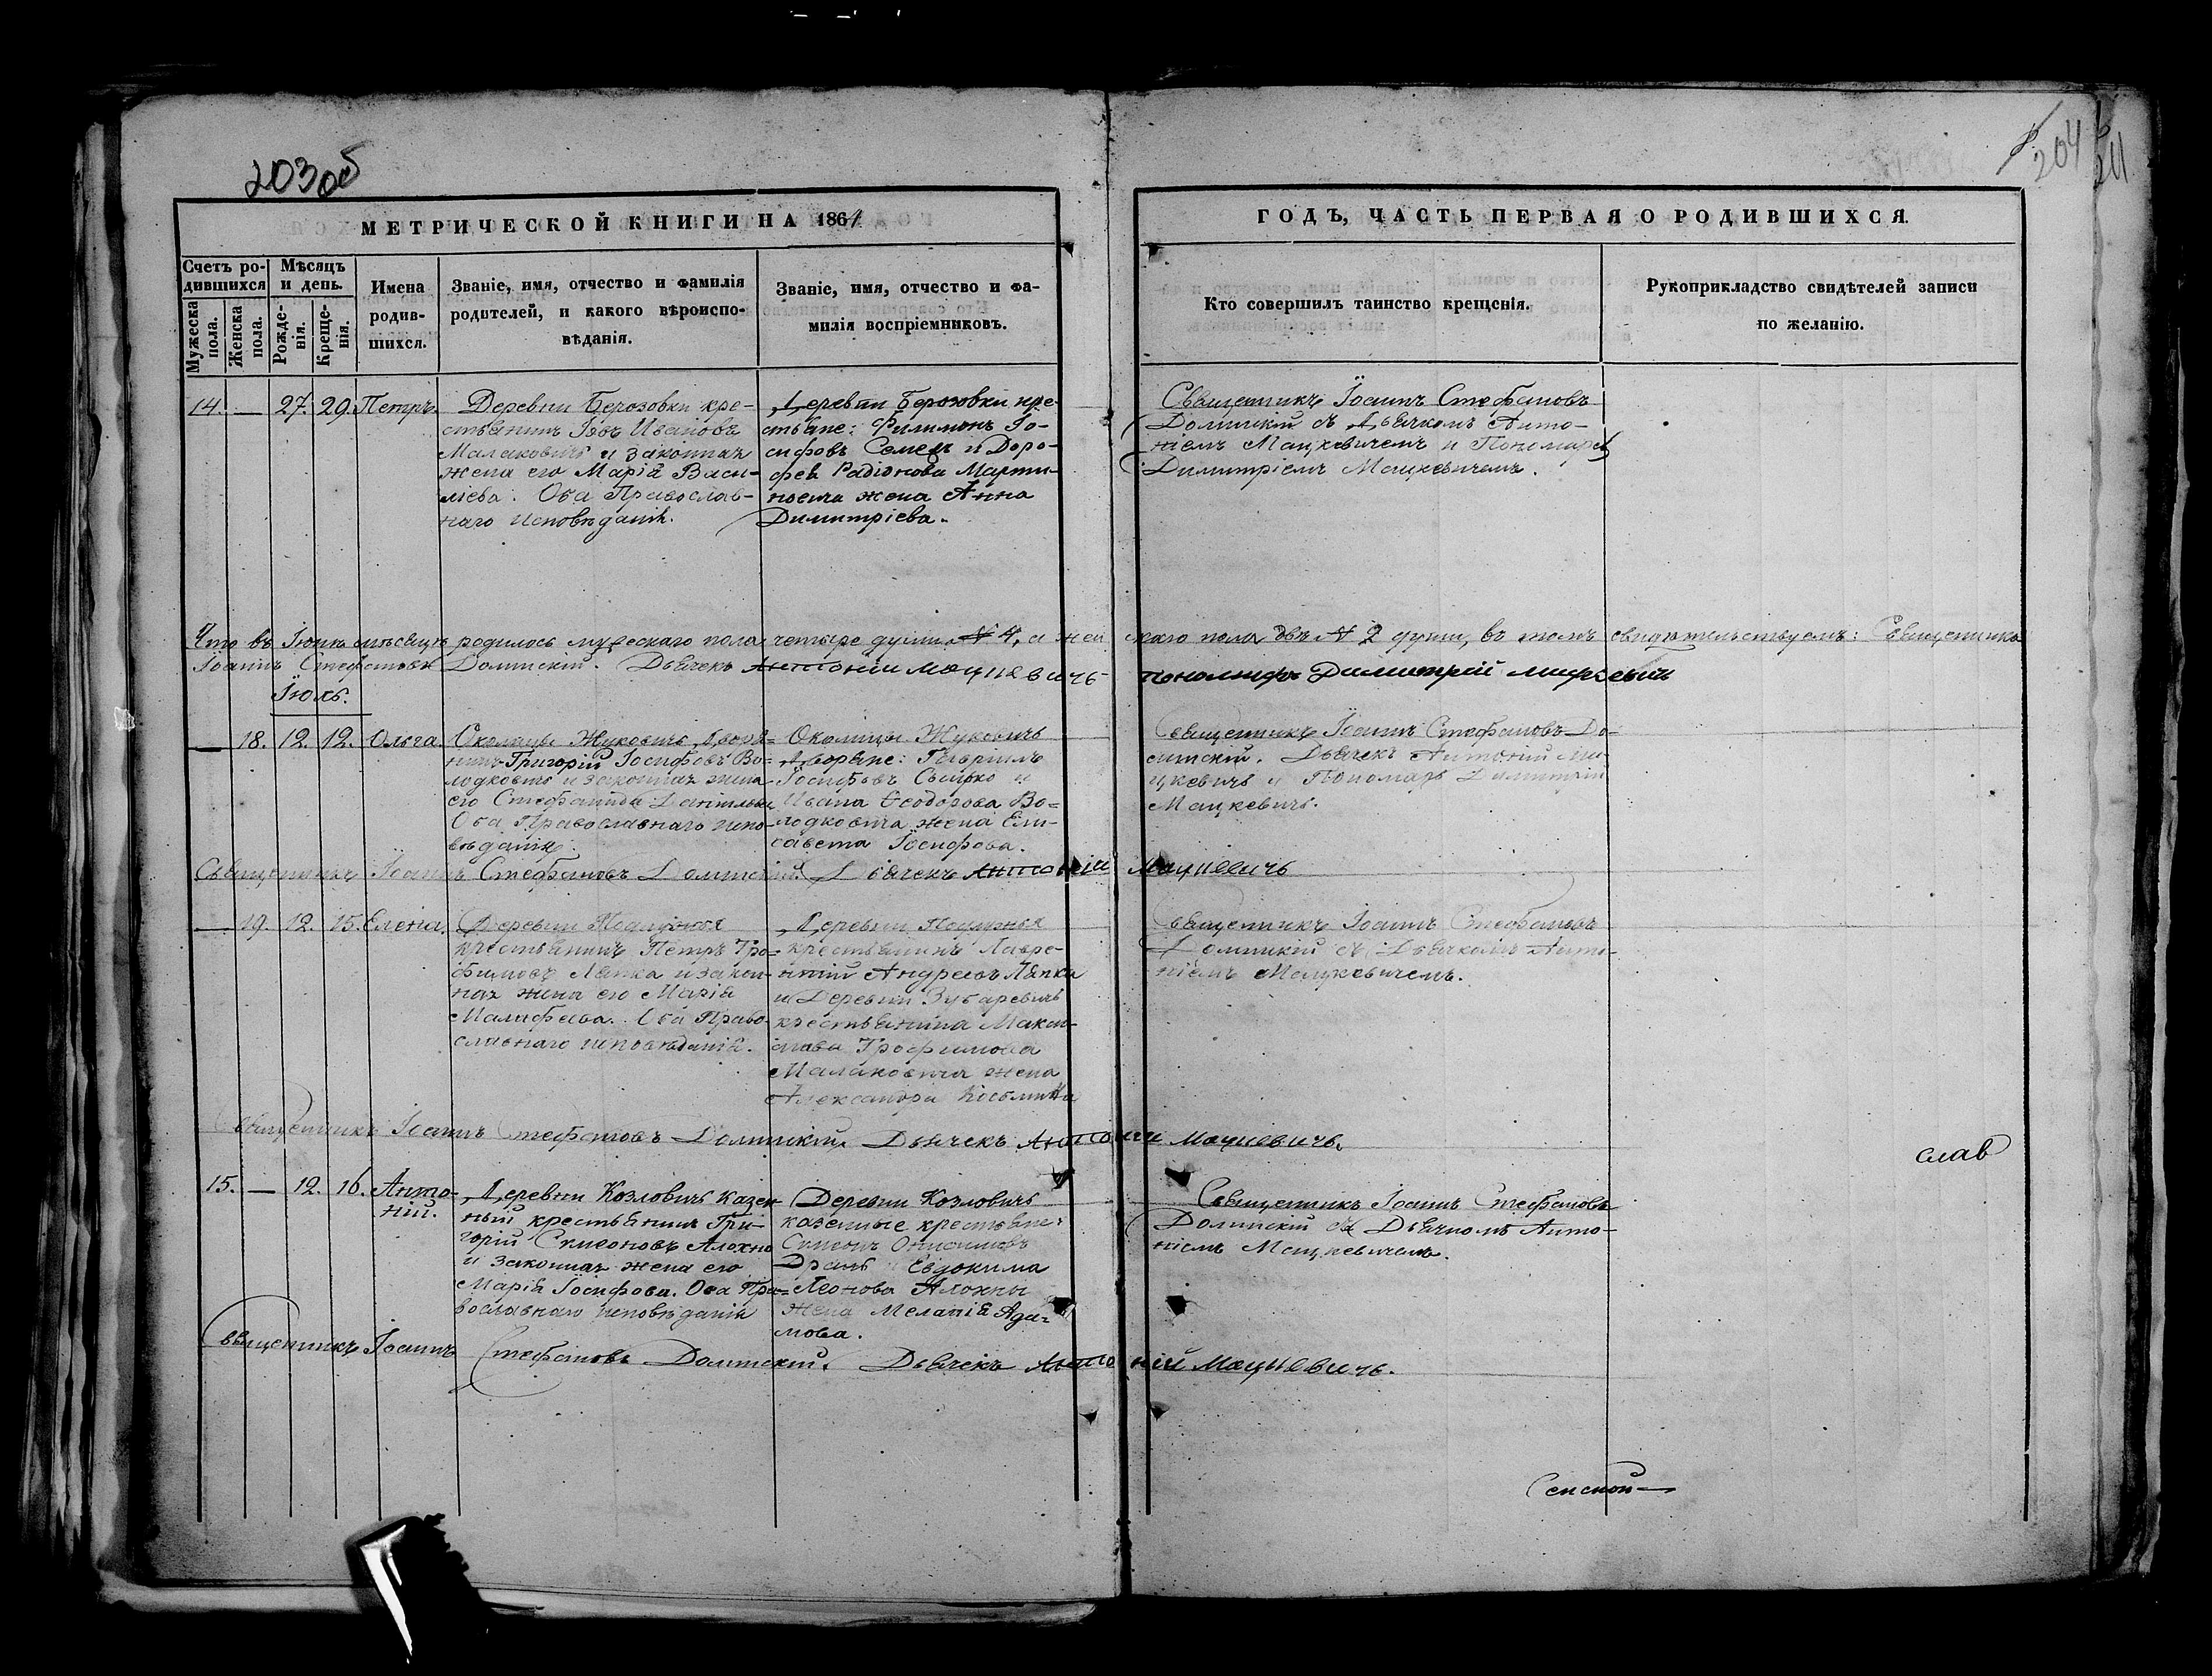 203об
204
211
МЕТРИЧЕСКОЙ КНИГИ НА 1861
ГОДЪ, ЧАСТЬ ПЕРВАЯ О РОДИВШИХСЯ.
Счетъ ро-
дившихся
Мужеска пола.
Женска пола.
Мѣсяцъ
и день.
Рожде-
нія.
Креще-
нія.
Имена
родив-
шихся.
Званіе, имя, отчество и фамилія
родителей, и какого вѣроиспо-
вѣданія.
Званіе, имя, отчество и фа-
милія воспріемниковъ.
Кто совершилъ таинство крещенія.
Рукоприкладство свидѣтелей записи
по желанію.
14. — 27. 29. Петръ.
Деревни Березовки кре-
стьянинъ Іовъ Ивановъ
Малаховичъ и законная
жена его Марія Васи-
ліева. Оба Православ-
наго исповѣданія.
Деревни Березовки кре-
стьяне: Филимонъ Іо-
сифовъ Семенъ и Доро-
фея Радіонова Марти-
новича жена Анна
Димитріева.
Священникъ Іоаннъ Стефановъ
Долинскій съ Дьячкомъ Анто-
ніемъ Мацкевичемъ и Пономаремъ
Димитріемъ Мацкевичемъ.
Что въ Іюнѣ мѣсяцѣ родилось мужескаго пола четыре души № 4, а жен скаго пола двѣ № 2 души, въ томъ свидѣтельствуемъ: Священникъ
Іоаннъ Стефановъ Долинскій. Дьячекъ Антоній Мацкевичъ Пономарь Димитрій Мацкевичъ
Іюль.
— 18. 12. 12. Ольга.
Околицы Жуковичъ Дворя=
нинъ Григорій Іосифовъ Во=
лодковичъ и законная жена
его Стефанида Даніилова
Оба Православнаго испо-
вѣданія.
Околицы Жуковичъ
Дворяне: Гавріилъ
Іосифовъ Сылко и
Ивана Ѳеодорова Во=
лодковича жена Ели-
савета Іосифова.
Священникъ Іоаннъ Стефановъ До-
линскій. Дьячекъ Антоній Ма-
цкевичъ и Пономарь Димитрій
Мацкевичъ.
Священникъ Іоаннъ Стефановъ Долинскій. Дьячекъ Антоній Мацкевичъ
— 19. 12. 15. Елена.
Деревни
крестьянинъ Петръ Тро=
фимовъ Ляпка и закон-
ная жена его Марія
Матфеева. Оба Право-
славнаго исповѣданія.
Деревни
крестьянинъ Лавре-
нтій Андреевъ Ляпка
и Деревни Зубаревичъ
крестьянина Макси-
Трофимова
Малаховича жена
Александра Косьмина
Священникъ Іоаннъ Стефановъ
Долинскій съ Дьячкомъ Анто-
ніемъ Мацкевичемъ.
Священникъ Іоаннъ Стефановъ Долинскій. Дьячекъ Антоній Мацкевичъ.
слав
15. — 12. 16. Анто-
ній.
Деревни Козловичъ казен-
ный крестьянинъ Гри-
горій Симеоновъ Алохно
и законная жена его
Марія Іосифова. Оба Пра=
вославнаго исповѣданія
Деревни Козловичъ
казенные крестьяне:
Симеонъ Онисимовъ
Евдокима
Леонова Алохны
жена Меланія Ада=
мова.
Священникъ Іоаннъ Стефановъ
Долинскій съ Дьячкомъ Анто-
ніемъ Мацкевичемъ.
Священникъ Іоаннъ Стефановъ Долинскій. Дьячекъ Антоній Мацкевичъ.